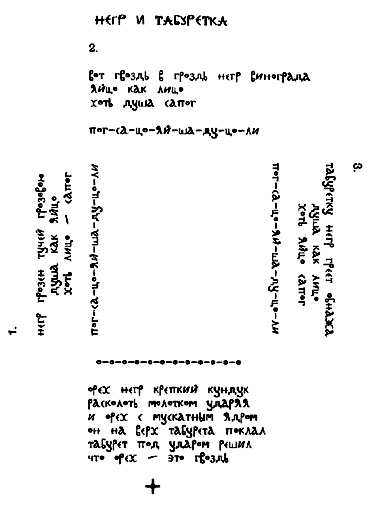 НЕГР И ТАБУРЕТКА
2.
вот гвоздь в гроздь негр винограда
яйцо как лицо
хоть душа сапог
пог-са-цо-яй-ша-ду-цо-ли
1.
негр грозен тучей грозовою
душа как яйцо
хоть лицо — сапог
пог-са-цо-яй-ша-ду-цо-ли
3.
табуретку негр греет обнажа
душа как лицо
хоть яйцо сапог
пог-са-цо-яй-ша-ду-цо-ли
орех негр крепкий кундук
расколоть молотком ударяя
и орех с мускатным ядром
он на верх табурета поклал
табурет под ударом решил
что орех — это гвоздь